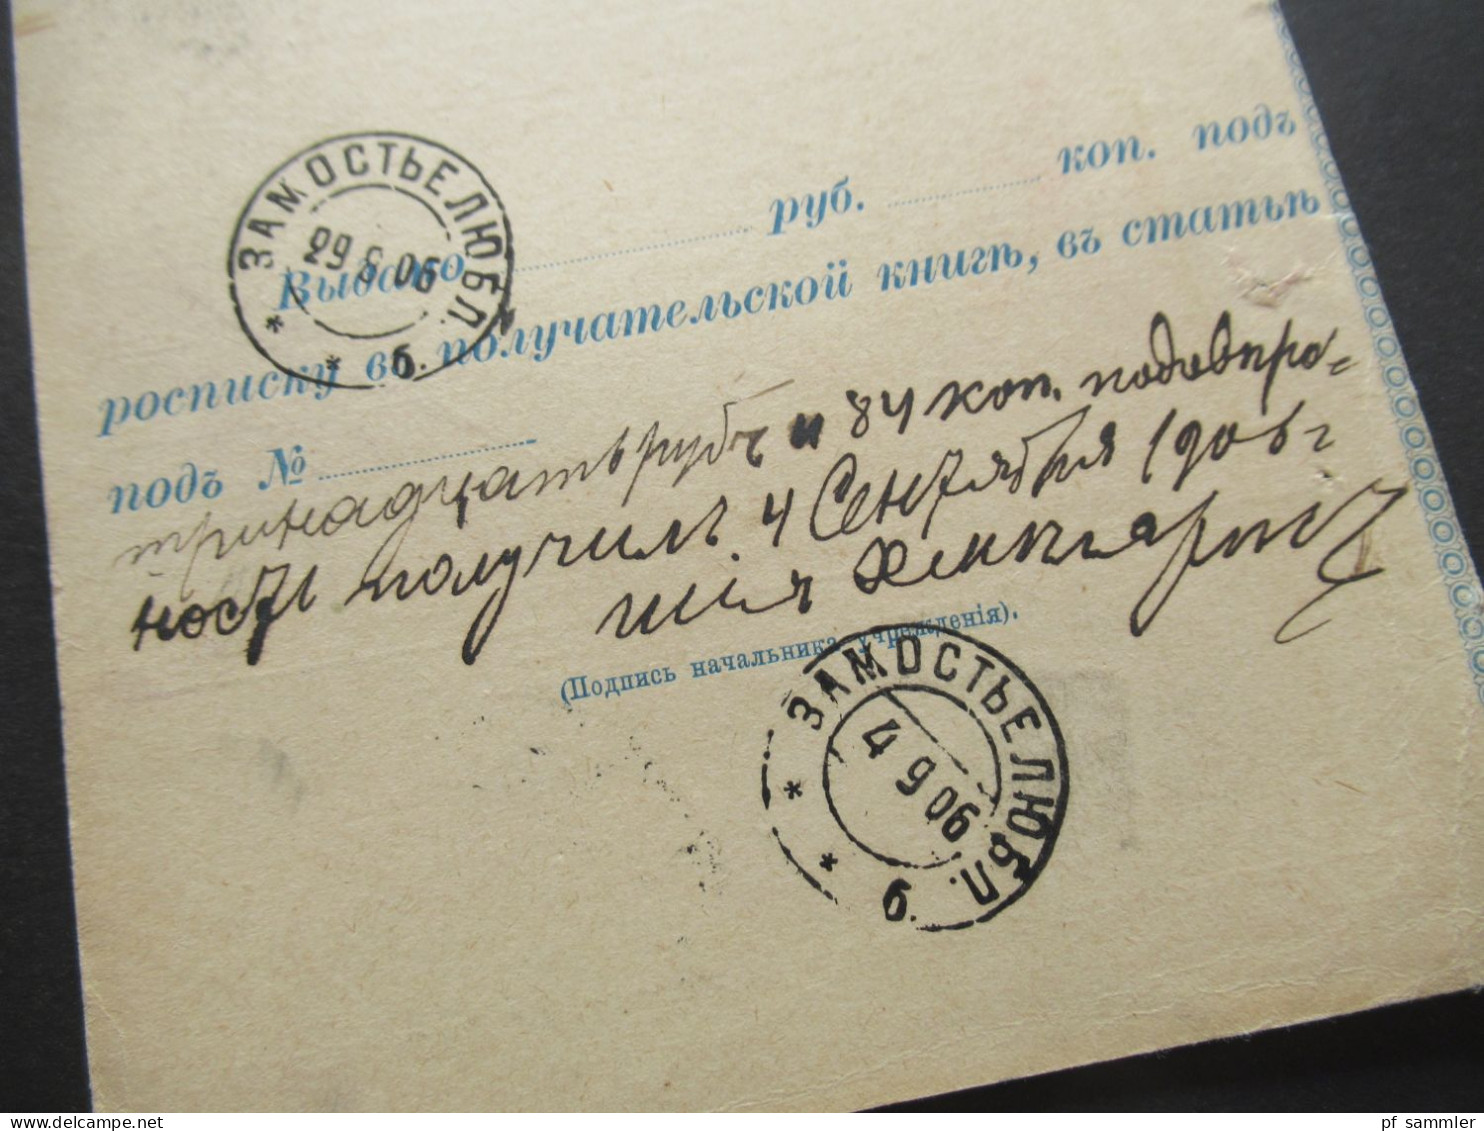 ЗАМОСТЬЕ ЛЮБЛ. б.
29 8 06
Выдано руб. коп. подъ
росписку въ получательской книгѣ, въ статьѣ
подъ №
тринадцать рубъ и 84 коп. по довѣрен-
ности получилъ 4 Сентября 1906 г
(Подпись начальника учрежденія).
ЗАМОСТЬЕ ЛЮБЛ. б.
4 9 06
pf sammler
www.delcampe.net